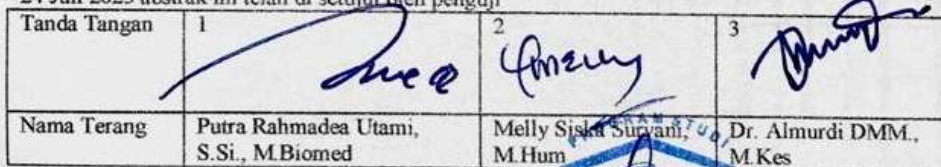 24 Juli 2023 abstrak ini telah di setujui oleh penguji
Tanda Tangan 1 2 3
Nama Terang Putra Rahmadea Utami, S.Si., M.Biomed Melly Siska Suryani, M.Hum Dr. Almurdi DMM., M.Kes
PROGRAM STUDI